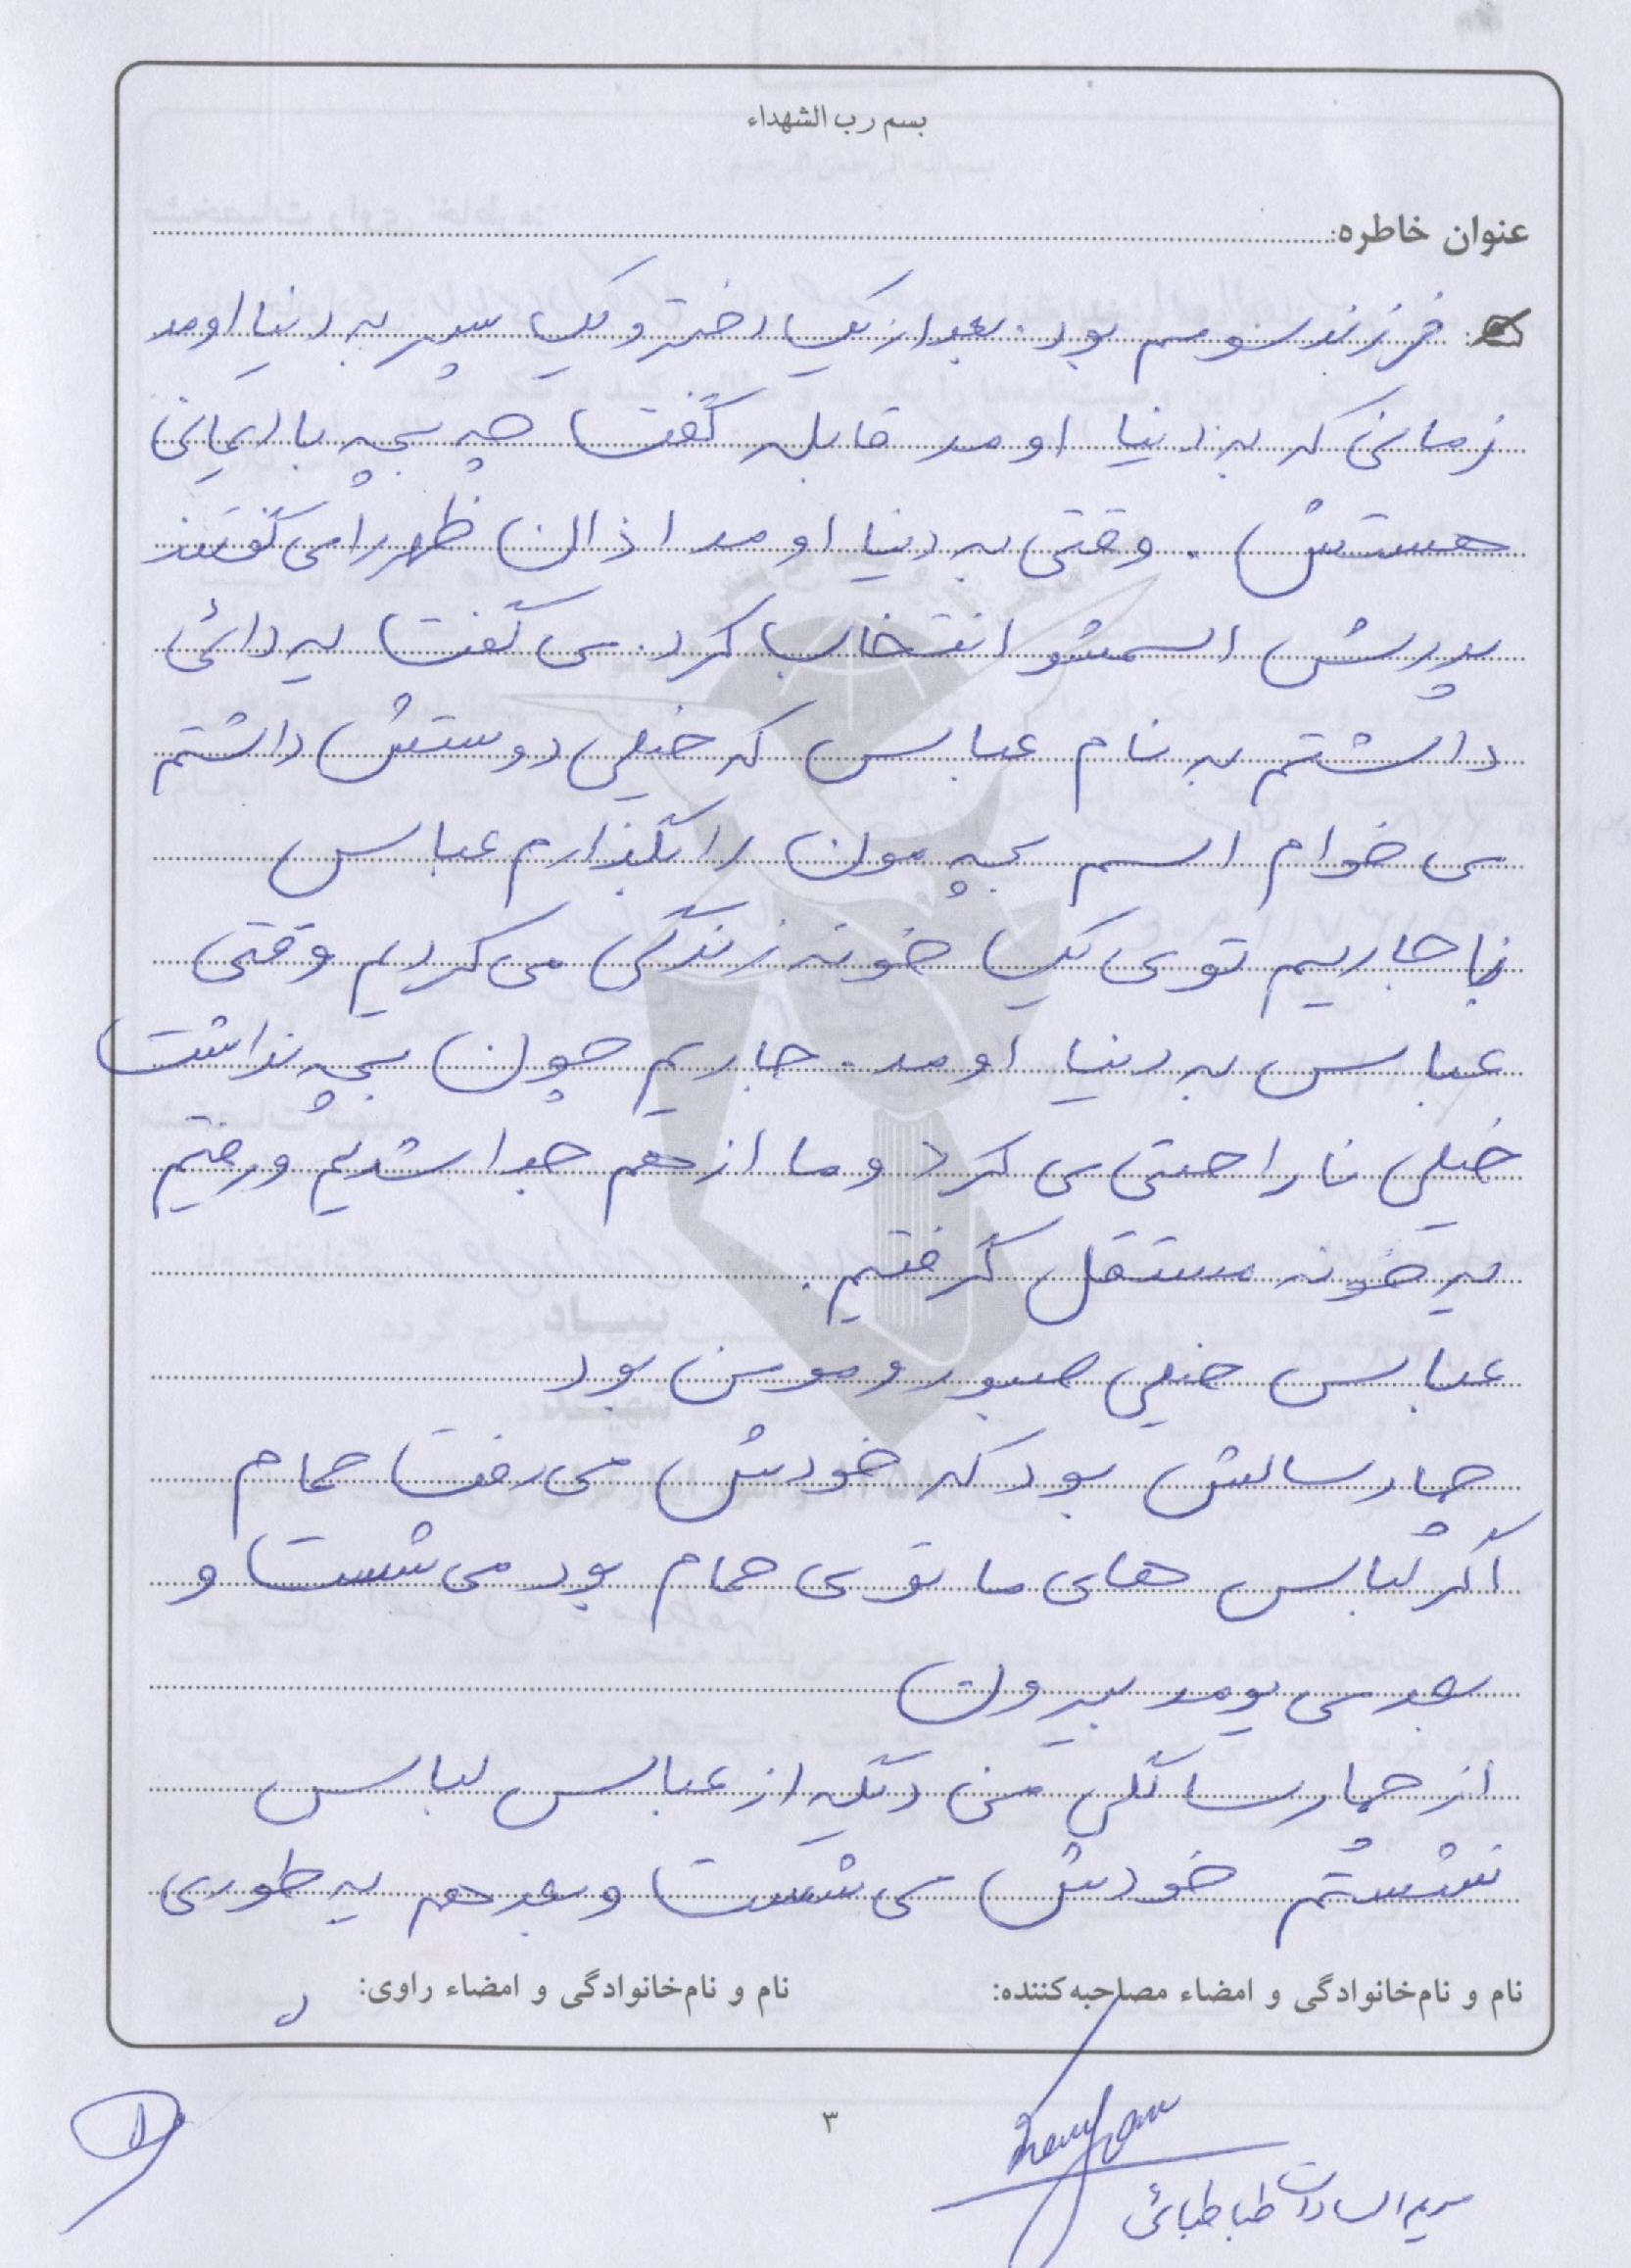 بسم رب الشهداء
عنوان خاطره:
فرزند سومم بود. بعد از یک دختر و یک پسر به دنیا اومد
زمانی که به دنیا اومد قابله گفت چه بچه با ایمانی
هستش. وقتی به دنیا اومد اذان ظهر را می گفتند
پدرش اسمشو انتخاب کرد. می گفت یه دائی
داشتم به نام عباس که خیلی دوستش داشتم
می خوام اسم بچه مون را بگذارم عباس
با جاریم توی یک خونه زندگی می کردیم وقتی
عباس به دنیا اومد. جاریم چون بچه نداشت
خیلی ناراحتی می کرد و ما از هم جدا شدیم و رفتیم
یه خونه مستقل گرفتیم.
عباس خیلی صبور و مومن بود
چهار سالش بود که خودش می رفت حمام
اگر لباس های ما توی حمام بود می شست و
بعد می یومد بیرون
از چهار سالگی من دیگه از عباس لباس
نشستم خودش می شست و بعد هم یه طوری
نام و نام‌خانوادگی و امضاء مصاحبه‌کننده:
نام و نام‌خانوادگی و امضاء راوی:
۳
مریم السادات طباطبائی